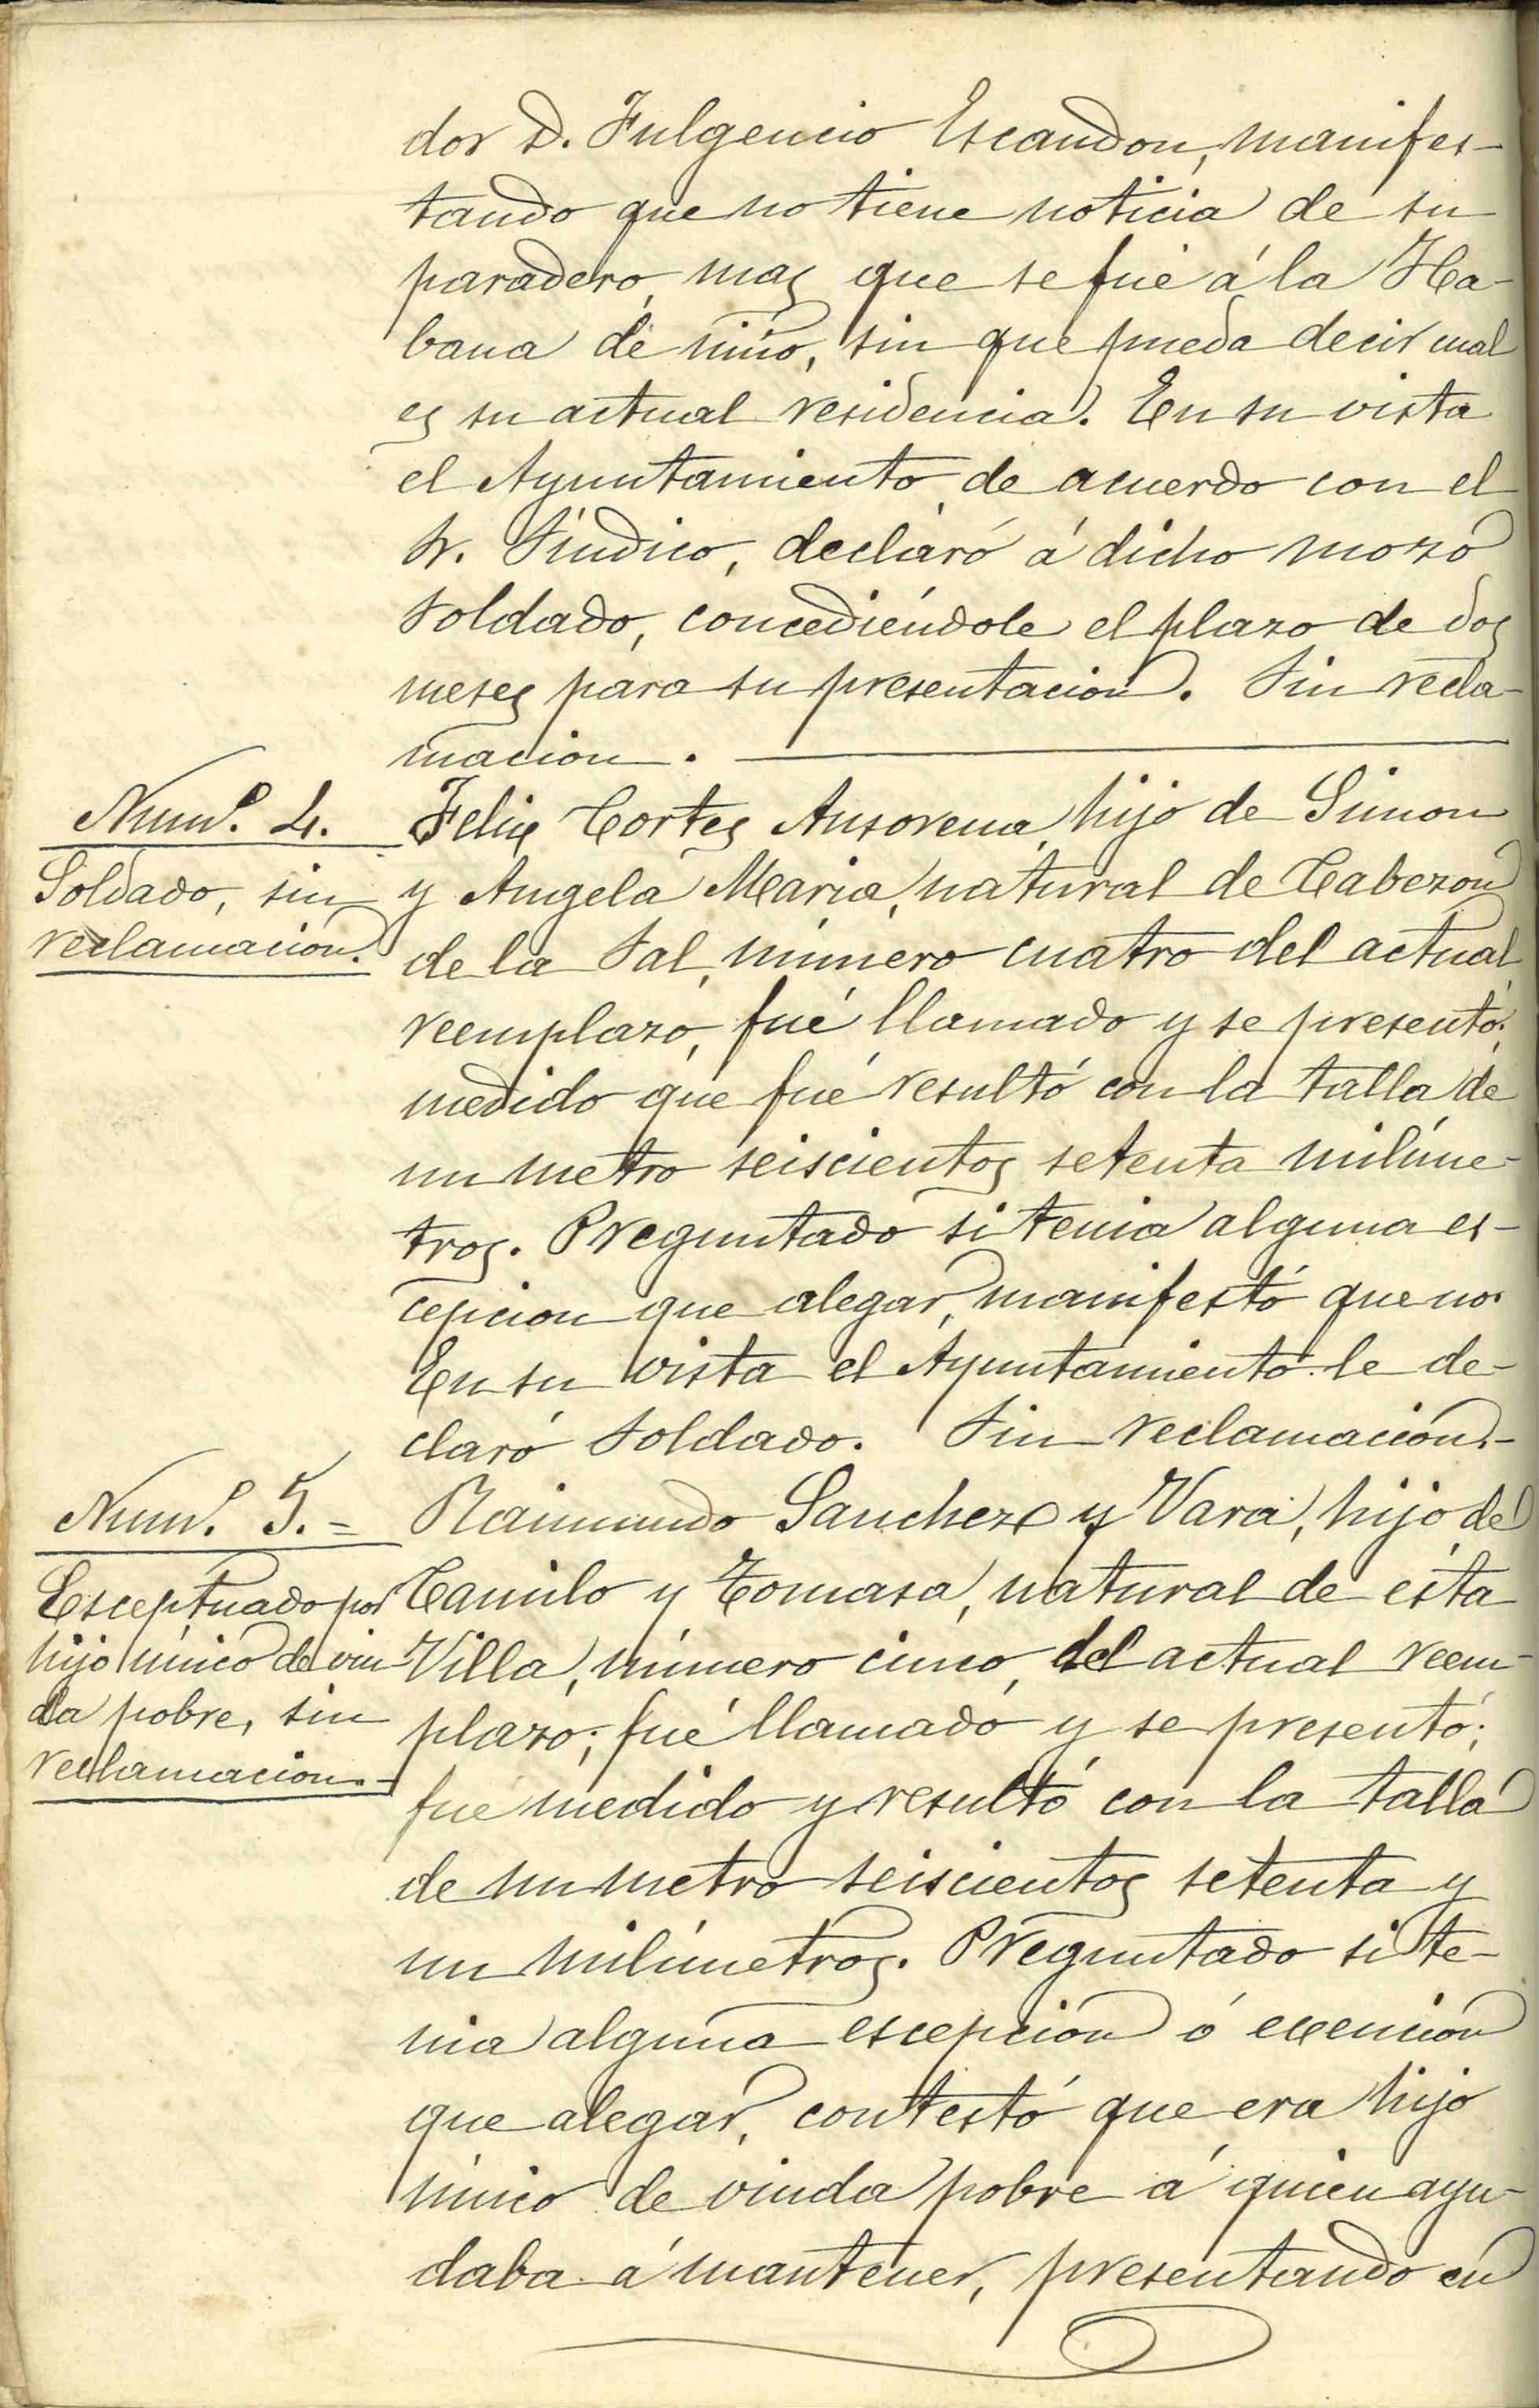 dor D. Fulgencio Escandon, manifes-
tando que no tiene noticia de su
paradero, mas que se fué á la Ha-
bana de niño, sin que pueda decir cual
es su actual residencia. En su vista
el Ayuntamiento, de acuerdo con el
Sr. Síndico, declaró á dicho mozo
soldado, concediéndole el plazo de dos
meses para su presentacion. Sin recla-
macion.
Num.º 4.
Soldado, sin
reclamacion.
Felix Cortes Ansorena, hijo de Simon
y Angela Maria, natural de Cabezon
de la Sal, número cuatro del actual
reemplazo, fué llamado y se presentó;
medido que fué resultó con la talla de
un metro seiscientos setenta milíme-
tros. Preguntado si tenia alguna es-
cepcion que alegar, manifestó que no.
En su vista el Ayuntamiento le de-
claró soldado. Sin reclamacion.-
Num.º 5.=
Esceptuado por
hijo único de viu
da pobre, sin
reclamacion.-
Raimundo Sanchez y Vara, hijo de
Camilo y Tomasa, natural de esta
Villa, número cinco, del actual reem-
plazo; fué llamado y se presentó;
fue medido y resultó con la talla
de un metro seiscientos setenta y
un milímetros. Preguntado si te-
nia alguna escepcion ó exencion
que alegar, contestó que era hijo
único de viuda pobre á quien ayu-
daba á mantener, presentando en